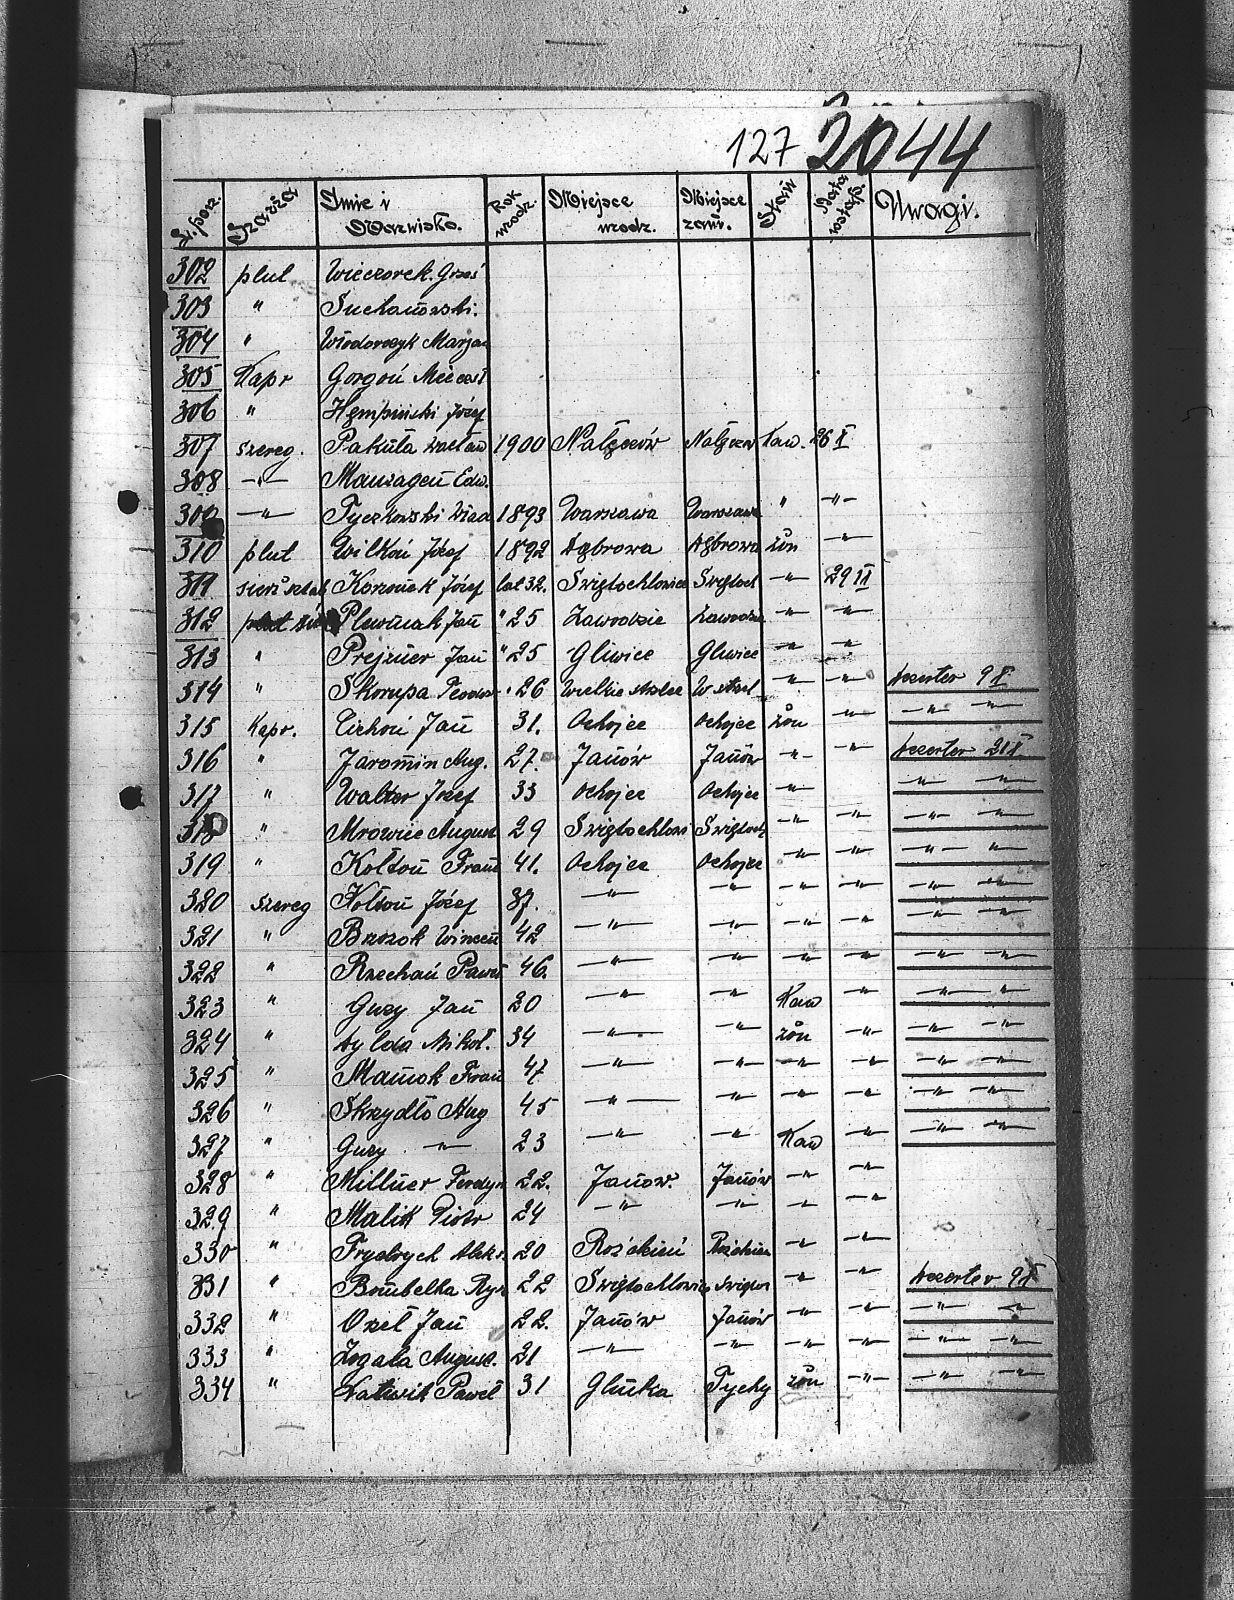 127 2044
L. porz. Szarża Imie i Nazwisko. Rok urodz. Miejsce urodz. Miejsce zam. Stan Data wstąp. Uwagi.
302 plut Wieczorek Grześ
303 " Suchanowski.
304 " Włodorczyk Marjan
305 Kapr Gorgoń Miecesł
306 " Hempiński Józef
307 szereg. Pakuła Wacław 1900 Nałęczów Nałęczów kaw. 26 X
308 -"- Edw.
309 -"- Tyczkowski Wład 1893 Warszawa Warszawa " -"-
310 plut Wilkoń Józef 1892 Dąbrowa Dąbrowa żon -"-
311 Józef lat 32. Świętochłowice Świętoch -"- 29 II
312 Plewniak Jan " 25 Zawodzie Zawodzie -"- -"-
313 " Prejzner Jan " 25 Gliwice Gliwice -"- -"-
314 " Skorupa Teodor " 26 Wielkie W -"- -"- dezerter 9 X
315 Kapr. Cichoń Jan 31. Ochojec Ochojec żon -"- -"- -"-
316 " Jaromin Aug. 27. Janów Janów -"- -"- dezerter
317 " Walter Józef 33 Ochojec Ochojec -"- -"- -"-
318 " Mrowiec August 29 Świętochłowi Świętoch -"- -"- -"- -"-
319 " Kołton Fran 41. Ochojec Ochojec -"- -"- -"- -"-
320 szereg Kołton Józef 37. -"- -"- -"- -"- -"- -"-
321 " Brzozok Wincen 42 -"- -"- -"- -"- -"- -"-
322 " Rzechań Paweł 46. -"- -"- -"- -"- -"- -"-
323 " Guzy Jan 20 -"- -"- Kaw -"- -"- -"-
324 " Dylda Mikoł. 34 -"- -"- żon -"- -"- -"-
325 " Mamok Fran 47 -"- -"- -"- -"- -"- -"-
326 " Skrzydło Aug 45 -"- -"- -"- -"- -"- -"-
327 " Guzy -"- 23 -"- -"- Kaw -"- -"- -"-
328 " Millner Ferdyn 22. Janow. Janów -"- -"-
329 " Malik Piotr 24 -"- -"- -"- -"-
330 " Frydrych Aleks. 20 Roździeń Roździen -"- -"-
331 " Bombelka Rys 22 Świętochłowice Świętoc -"- -"- dezerter 9 X
332 " Orzeł Jan 22. Janów Janów -"- -"- -"- -"-
333 " Zogała August. 21 -"- -"- -"- -"- -"- -"-
334 " Paweł 31 Glinka Tychy żon -"- -"- -"-